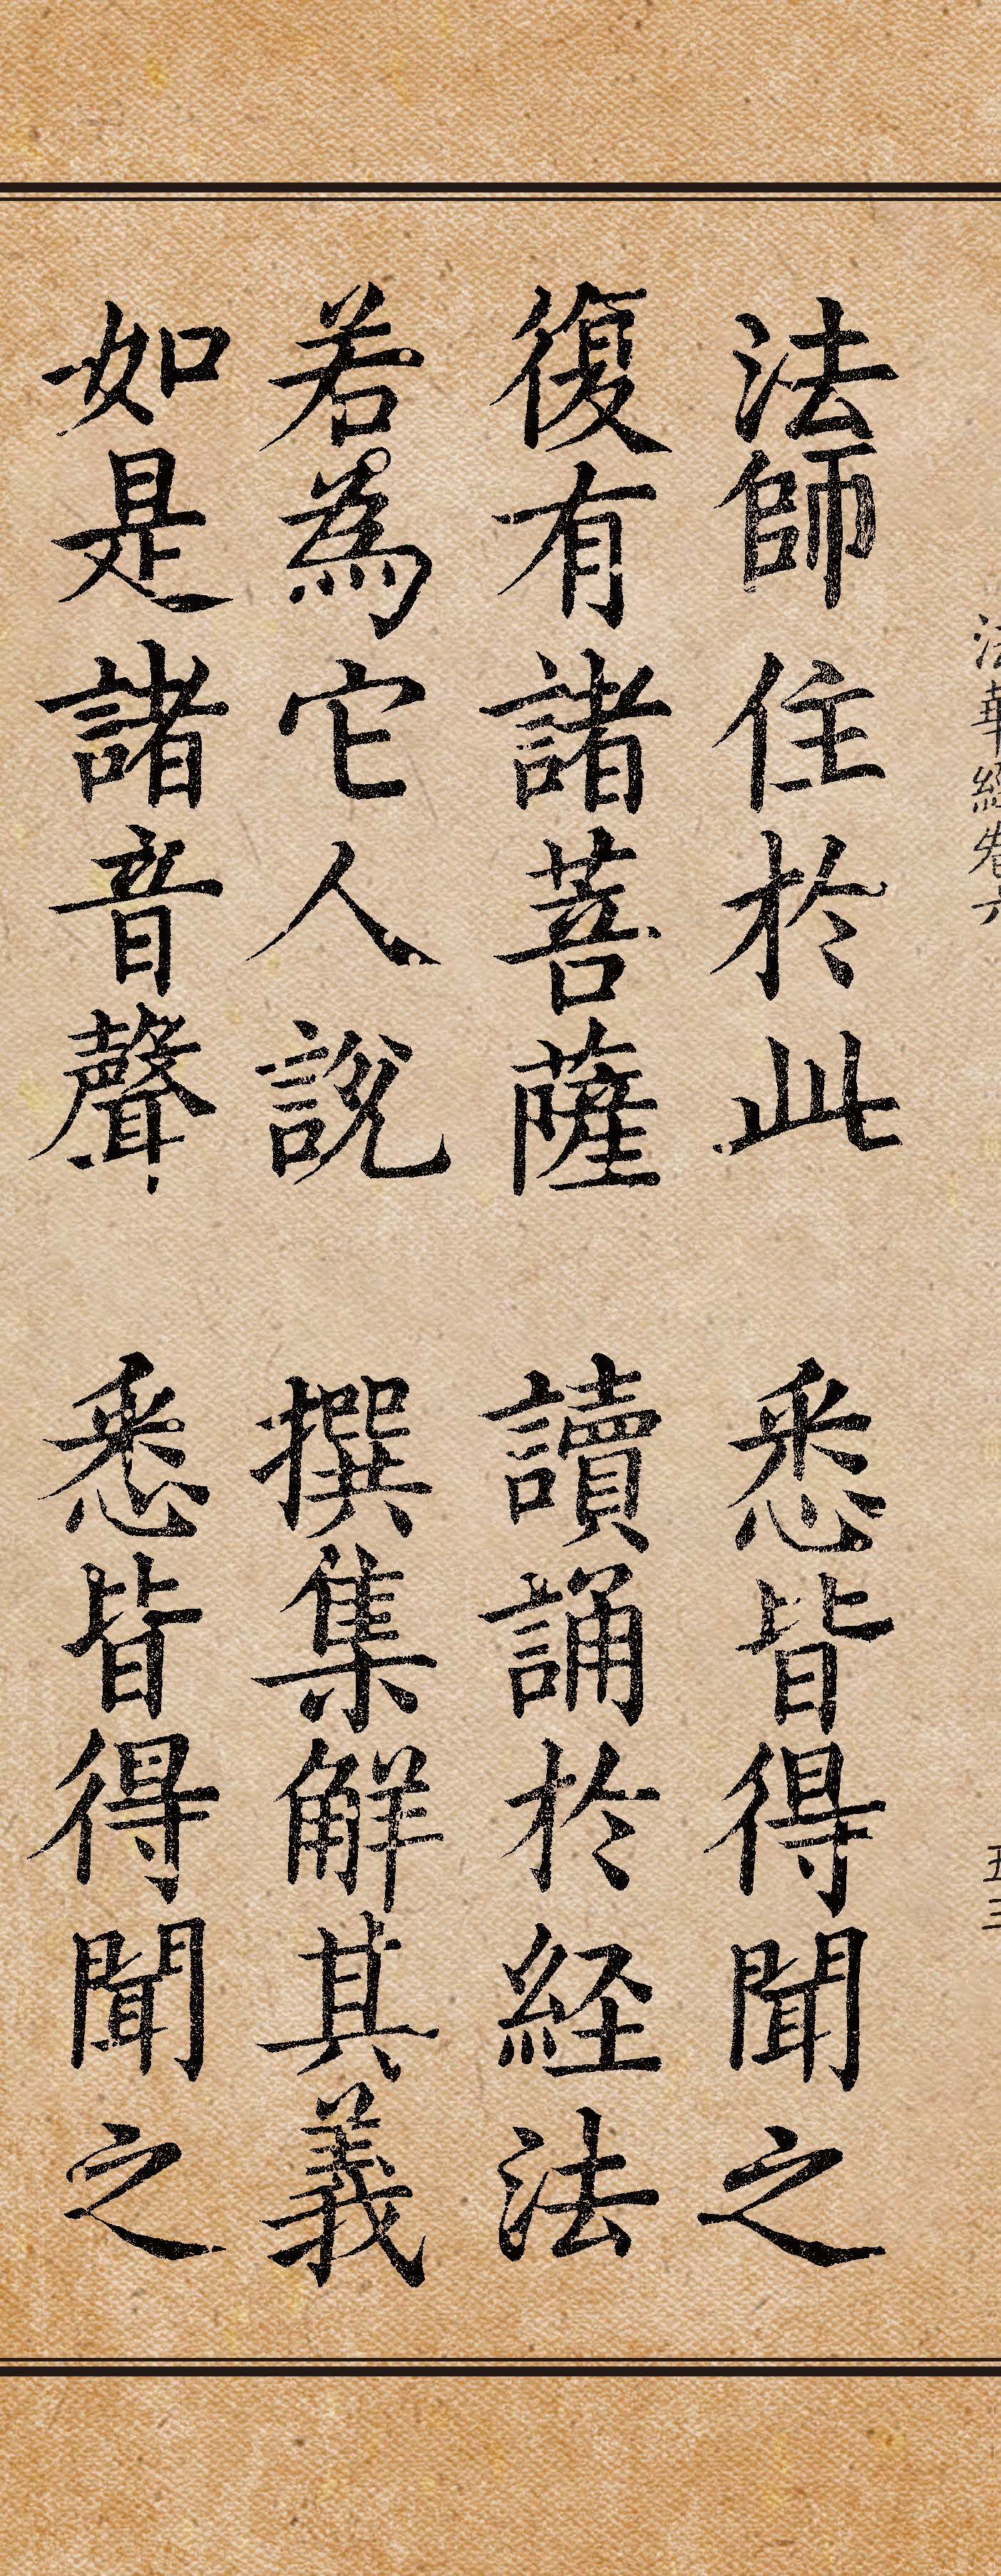 法華経巻六
五三
法師住於此 悉皆得聞之
復有諸菩薩 讀誦於経法
若為它人說 撰集解其義
如是諸音聲 悉皆得聞之